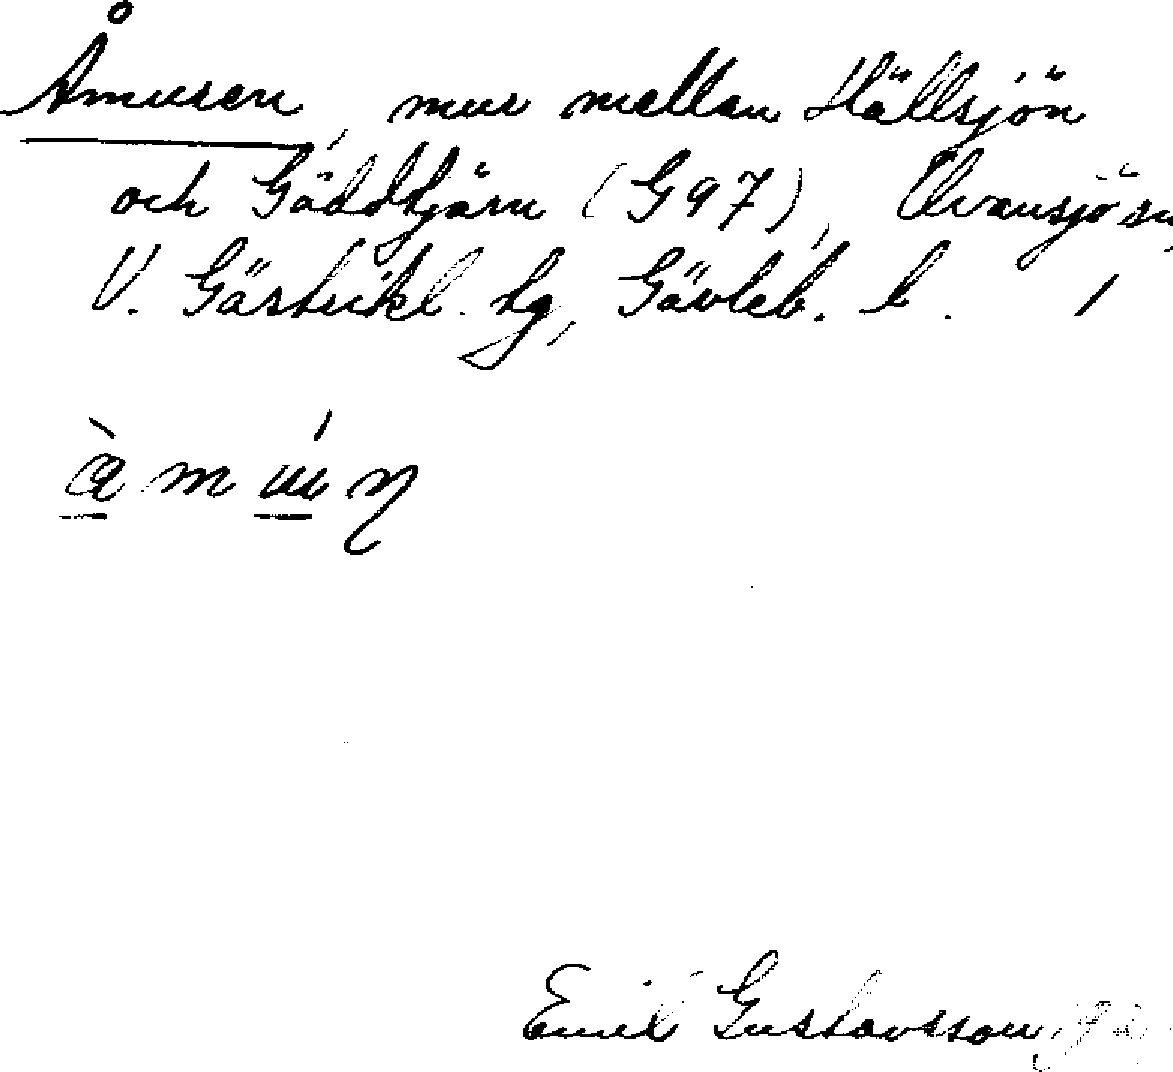 Åmuren, mur mellan Hällsjön
och Gäddtjärn (G97), Ovansjö sn,
V. Gästrikl. tg, Gävleb. l.
Emil Gustavsson